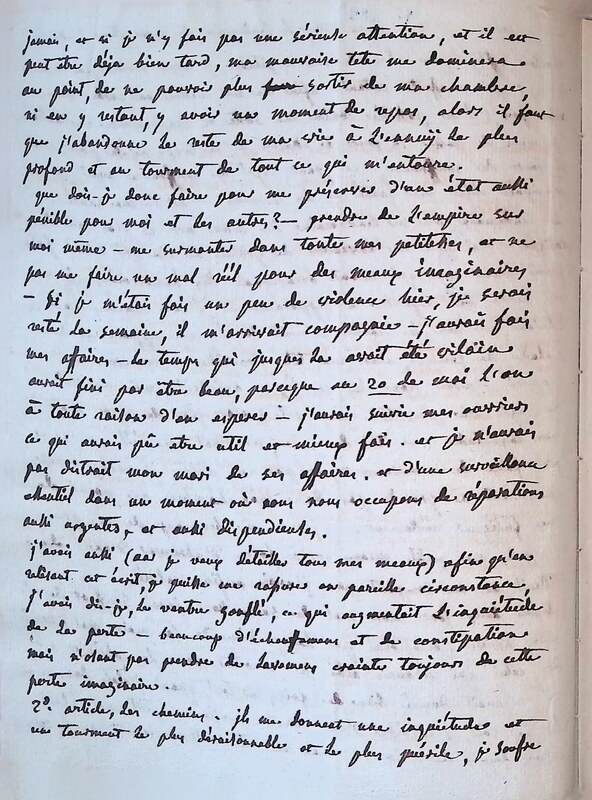 jamais, et si je n'y fais pas une sérieuse attention, et il est
peut être déja bien tard, ma mauvaise tête me dominera
au point, de ne pouvoir plus sortir de ma chambre,
ni en y restant, y avoir un moment de repos, alors il faut
que j'abandonne le reste de ma vie à l'ennuy le plus
profond et au tourment de tout ce qui m'entoure.
que dois-je donc faire pour me préserver d'un état aussi
pénible pour moi et les autres? – prendre de l'empire sur
moi même – me surmonter dans toute mes petitesses, et ne
pas me faire un mal réél pour des meaux imaginaires
– si je m'étais fais un peu de violence hier, je serais
resté la semaine, il m'arrivait compagnie – j'aurais fais
mes affaires – le temps qui jusques la avait été vilain
aurait fini par être beau, parceque au 20 de mai l'on
à toute raison d'en esperer – j'aurais suivie mes ouvriers
ce qui aurais pû etre util et mieux fais. et je n'aurais
pas distrait mon mari de ses affaires. et d'une surveillance
essentiel dans un moment où nous nous occupons de réparations
aussi urgentes, et aussi dispendieuses.
j'avais aussi (car je veux détailler tous mes meaux) afin qu'en
relisant cet écrit, je puisse me rassurer en pareille circonstance,
j'avais dis-je, le ventre gonflé, ce qui augmentait l'inquiétude
de la perte – beaucoup d'échauffemens et de constipation
mais n'osant pas prendre de lavemens crainte toujours de cette
perte imaginaire.
2º. article, les chemins. ils me donnent une inquiétude et
un tourment le plus déraisonnable et le plus puérile, je souffre